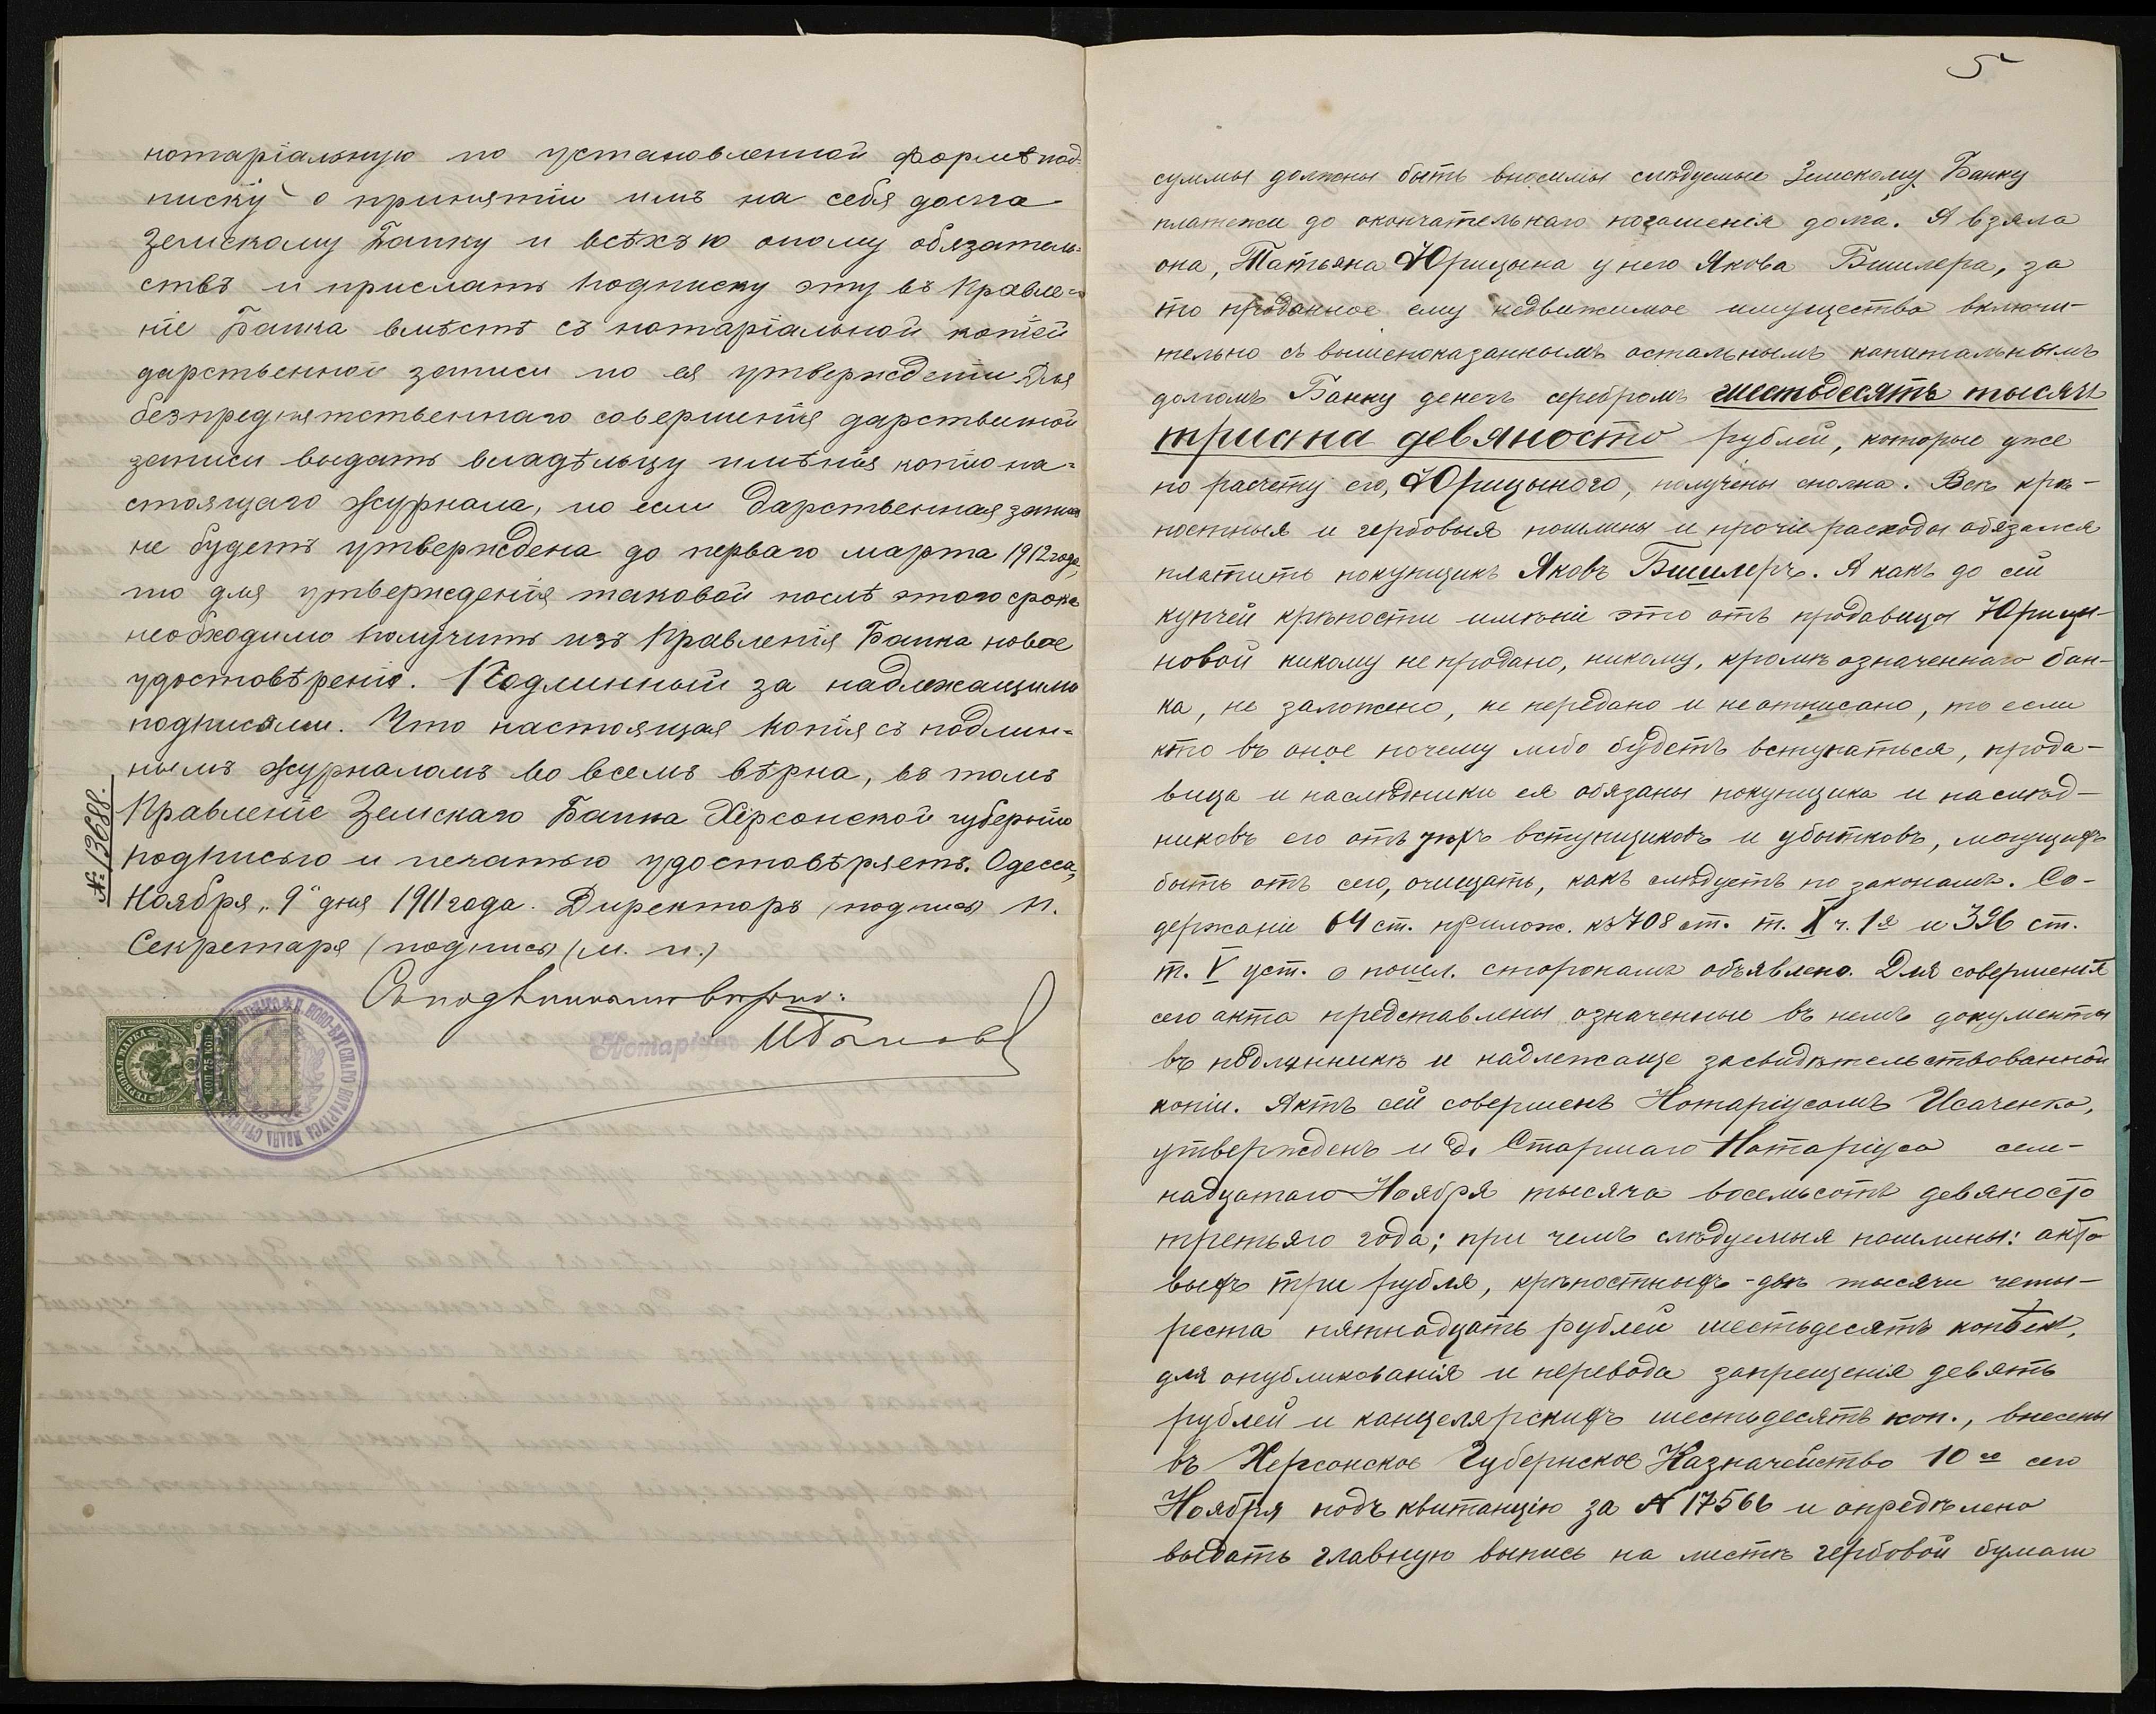 нотаріальную по установленной формѣ под-
писку о принятіи имъ на себя долга
Земскому Банку и всѣхъ по оному обязатель-
ствъ и прислать подписку эту въ Правле-
ніе Банка вмѣстѣ съ нотаріальной копіей
дарственной записи по ея утвержденіи. Для
безпрепятственнаго совершенія дарственной
записи выдать владѣльцу имѣнія копію на-
стоящаго журнала, но если дарственная запись
не будетъ утверждена до перваго марта 1912 года,
то для утвержденія таковой послѣ этого срока
необходимо получить изъ Правленія Банка новое
удостовѣреніе. Подлинный за надлежащими
подписями. Что настоящая копія съ подлин-
нымъ журналомъ во всемъ вѣрна, въ томъ
Правленіе Земскаго Банка Херсонской губерніи
подписью и печатью удостовѣряетъ. Одесса,
Ноября „9" дня 1911 года. Директоръ (подпись) п.
Секретаря (подпись) (м. п.)
№ 13688.
Съ подлинникомъ вѣрно:
Нотаріусъ
ГЕРБОВАЯ МАРКА
75 КОП
5
суммы должны быть вносимы слѣдуемые Земскому Банку
платежи до окончательнаго погашенія долга. А взяла
она, Татьяна Юрицына у него Якова Бишлера, за
то проданное ему недвижимое имущество включи-
тельно съ вышепоказаннымъ остальнымъ капитальнымъ
долгомъ Банку денегъ серебромъ шестьдесятъ тысячъ
триста девяносто рублей, которые уже
по расчету его, Юрицыной, получены сполна. Всѣ крѣ-
постныя и гербовыя пошлины и прочіе расходы обязался
платить покупщикъ Яковъ Бишлеръ. А какъ до сей
купчей крѣпости имѣніе это отъ продавицы Юрицы-
новой никому не продано, никому, кромѣ означеннаго бан-
ка, не заложено, не передано и не отписано, то если
кто въ оное почему либо будетъ вступаться, прода-
вица и наслѣдники ея обязаны покупщика и наслѣд-
никовъ его отъ тѣхъ вступщиковъ и убытковъ, могущихъ
быть отъ сего, очищать, какъ слѣдуетъ по законамъ. Со-
держаніе 64 ст. прилож. къ 708 ст. т. X ч. 1я и 396 ст.
т. V уст. о пошл. сторонамъ объявлено. Для совершенія
сего акта представлены означенные въ немъ документы
въ подлинникѣ и надлежаще засвидѣтельствованной
копіи. Актъ сей совершенъ Нотаріусомъ Исаченко,
утвержденъ и д. Старшаго Нотаріуса сем-
надцатаго Ноября тысяча восемьсотъ девяносто
третьяго года; при чемъ слѣдуемыя пошлины: акто-
выхъ три рубля, крѣпостныхъ - двѣ тысячи четы-
реста пятнадцать рублей шестьдесятъ копѣекъ,
для опубликованія и перевода запрещенія девять
рублей и канцелярскихъ шестьдесятъ коп., внесены
въ Херсонское Губернское Казначейство 10го сего
Ноября подъ квитанцію за № 17566 и опредѣлено
выдать главную выпись на листѣ гербовой бумаги